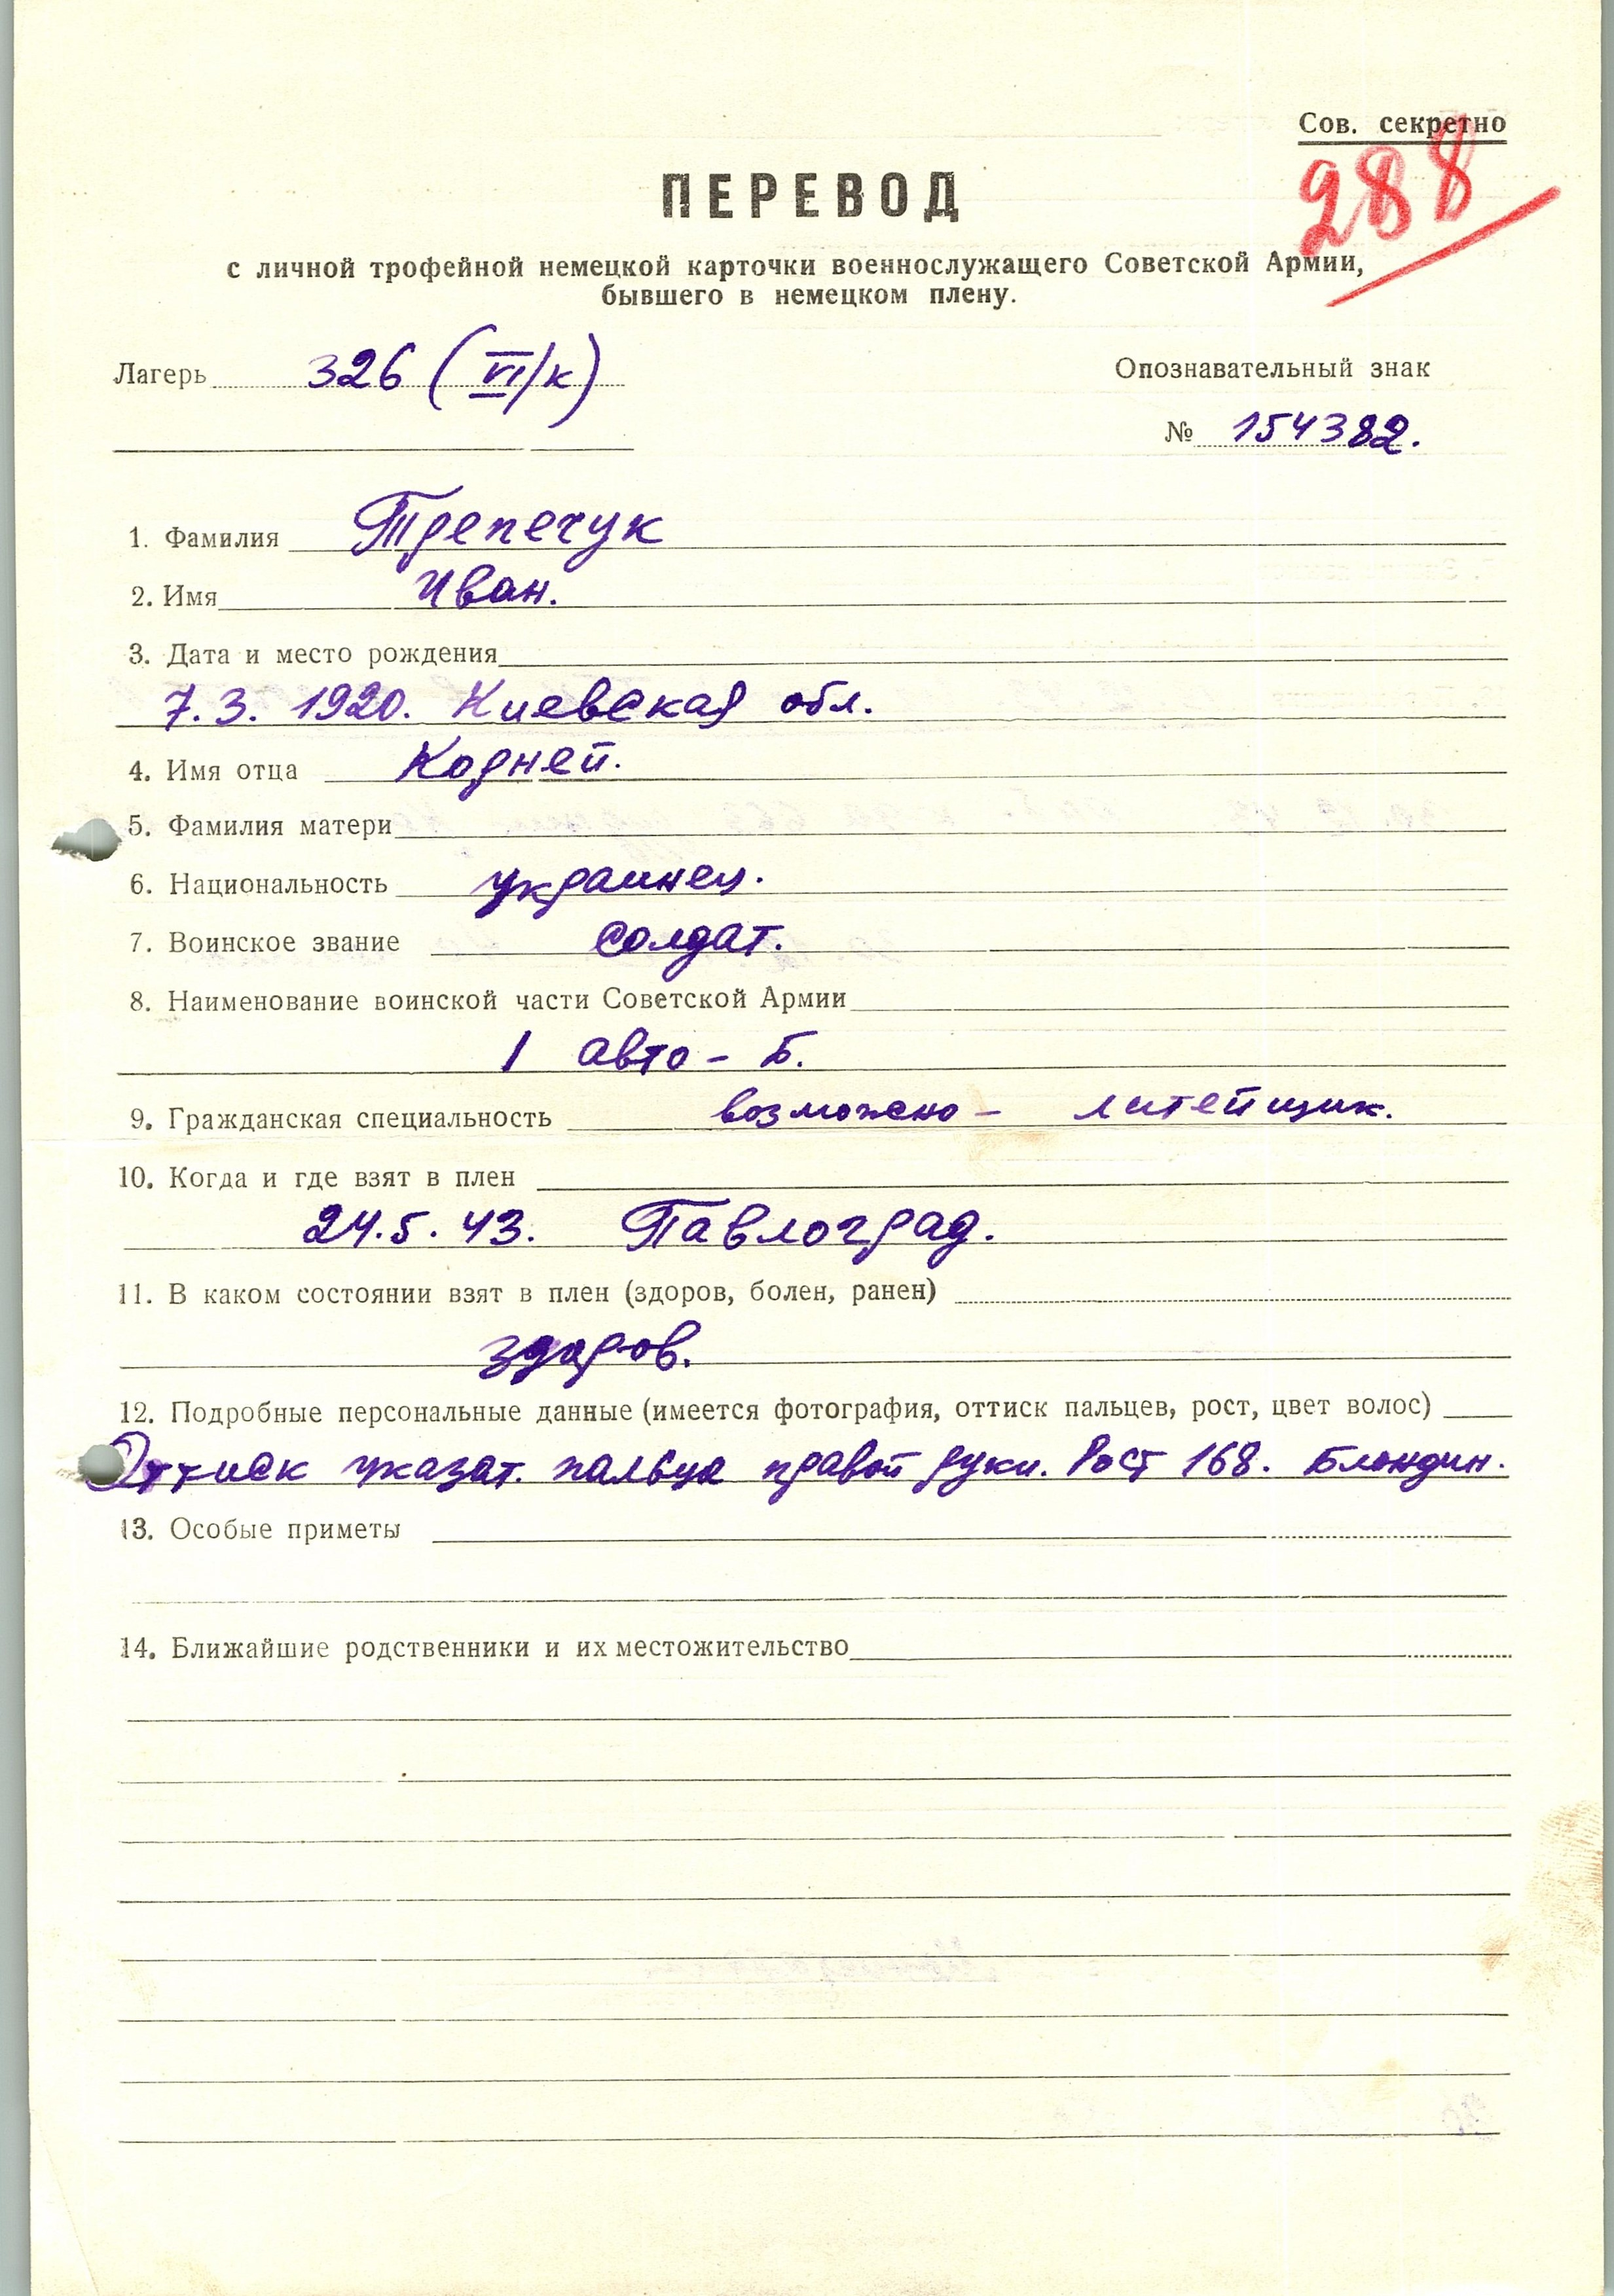 Сов. секретно
288
ПЕРЕВОД
с личной трофейной немецкой карточки военнослужащего Советской Армии,
бывшего в немецком плену.
Лагерь 326 (VI/к)
Опознавательный знак
№ 154382.
1. Фамилия Трепечук
2. Имя Иван.
3. Дата и место рождения
7.3. 1920. Киевская обл.
4. Имя отца Корней.
5. Фамилия матери
6. Национальность украинец.
7. Воинское звание солдат.
8. Наименование воинской части Советской Армии
1 авто - Б.
9. Гражданская специальность возможно - литейщик.
10. Когда и где взят в плен
24.5.43. Павлоград.
11. В каком состоянии взят в плен (здоров, болен, ранен)
здоров.
12. Подробные персональные данные (имеется фотография, оттиск пальцев, рост, цвет волос)
Оттиск указат. пальца правой руки. Рост 168. Блондин.
13. Особые приметы
14. Ближайшие родственники и их местожительство